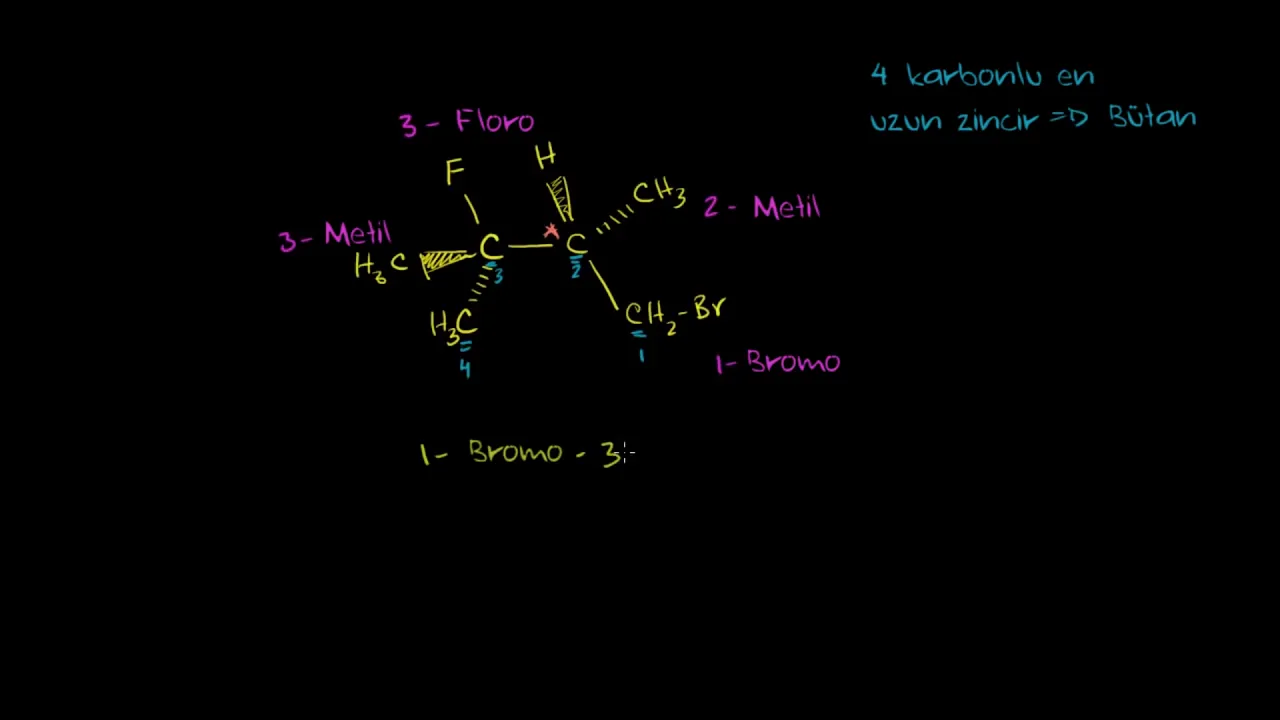 4 karbonlu en
uzun zincir => Bütan
3 - Floro
F
H
CH3
2 - Metil
3 - Metil
H3C
C
C
3
2
H3C
CH2-Br
4
1
1- Bromo
1- Bromo - 3